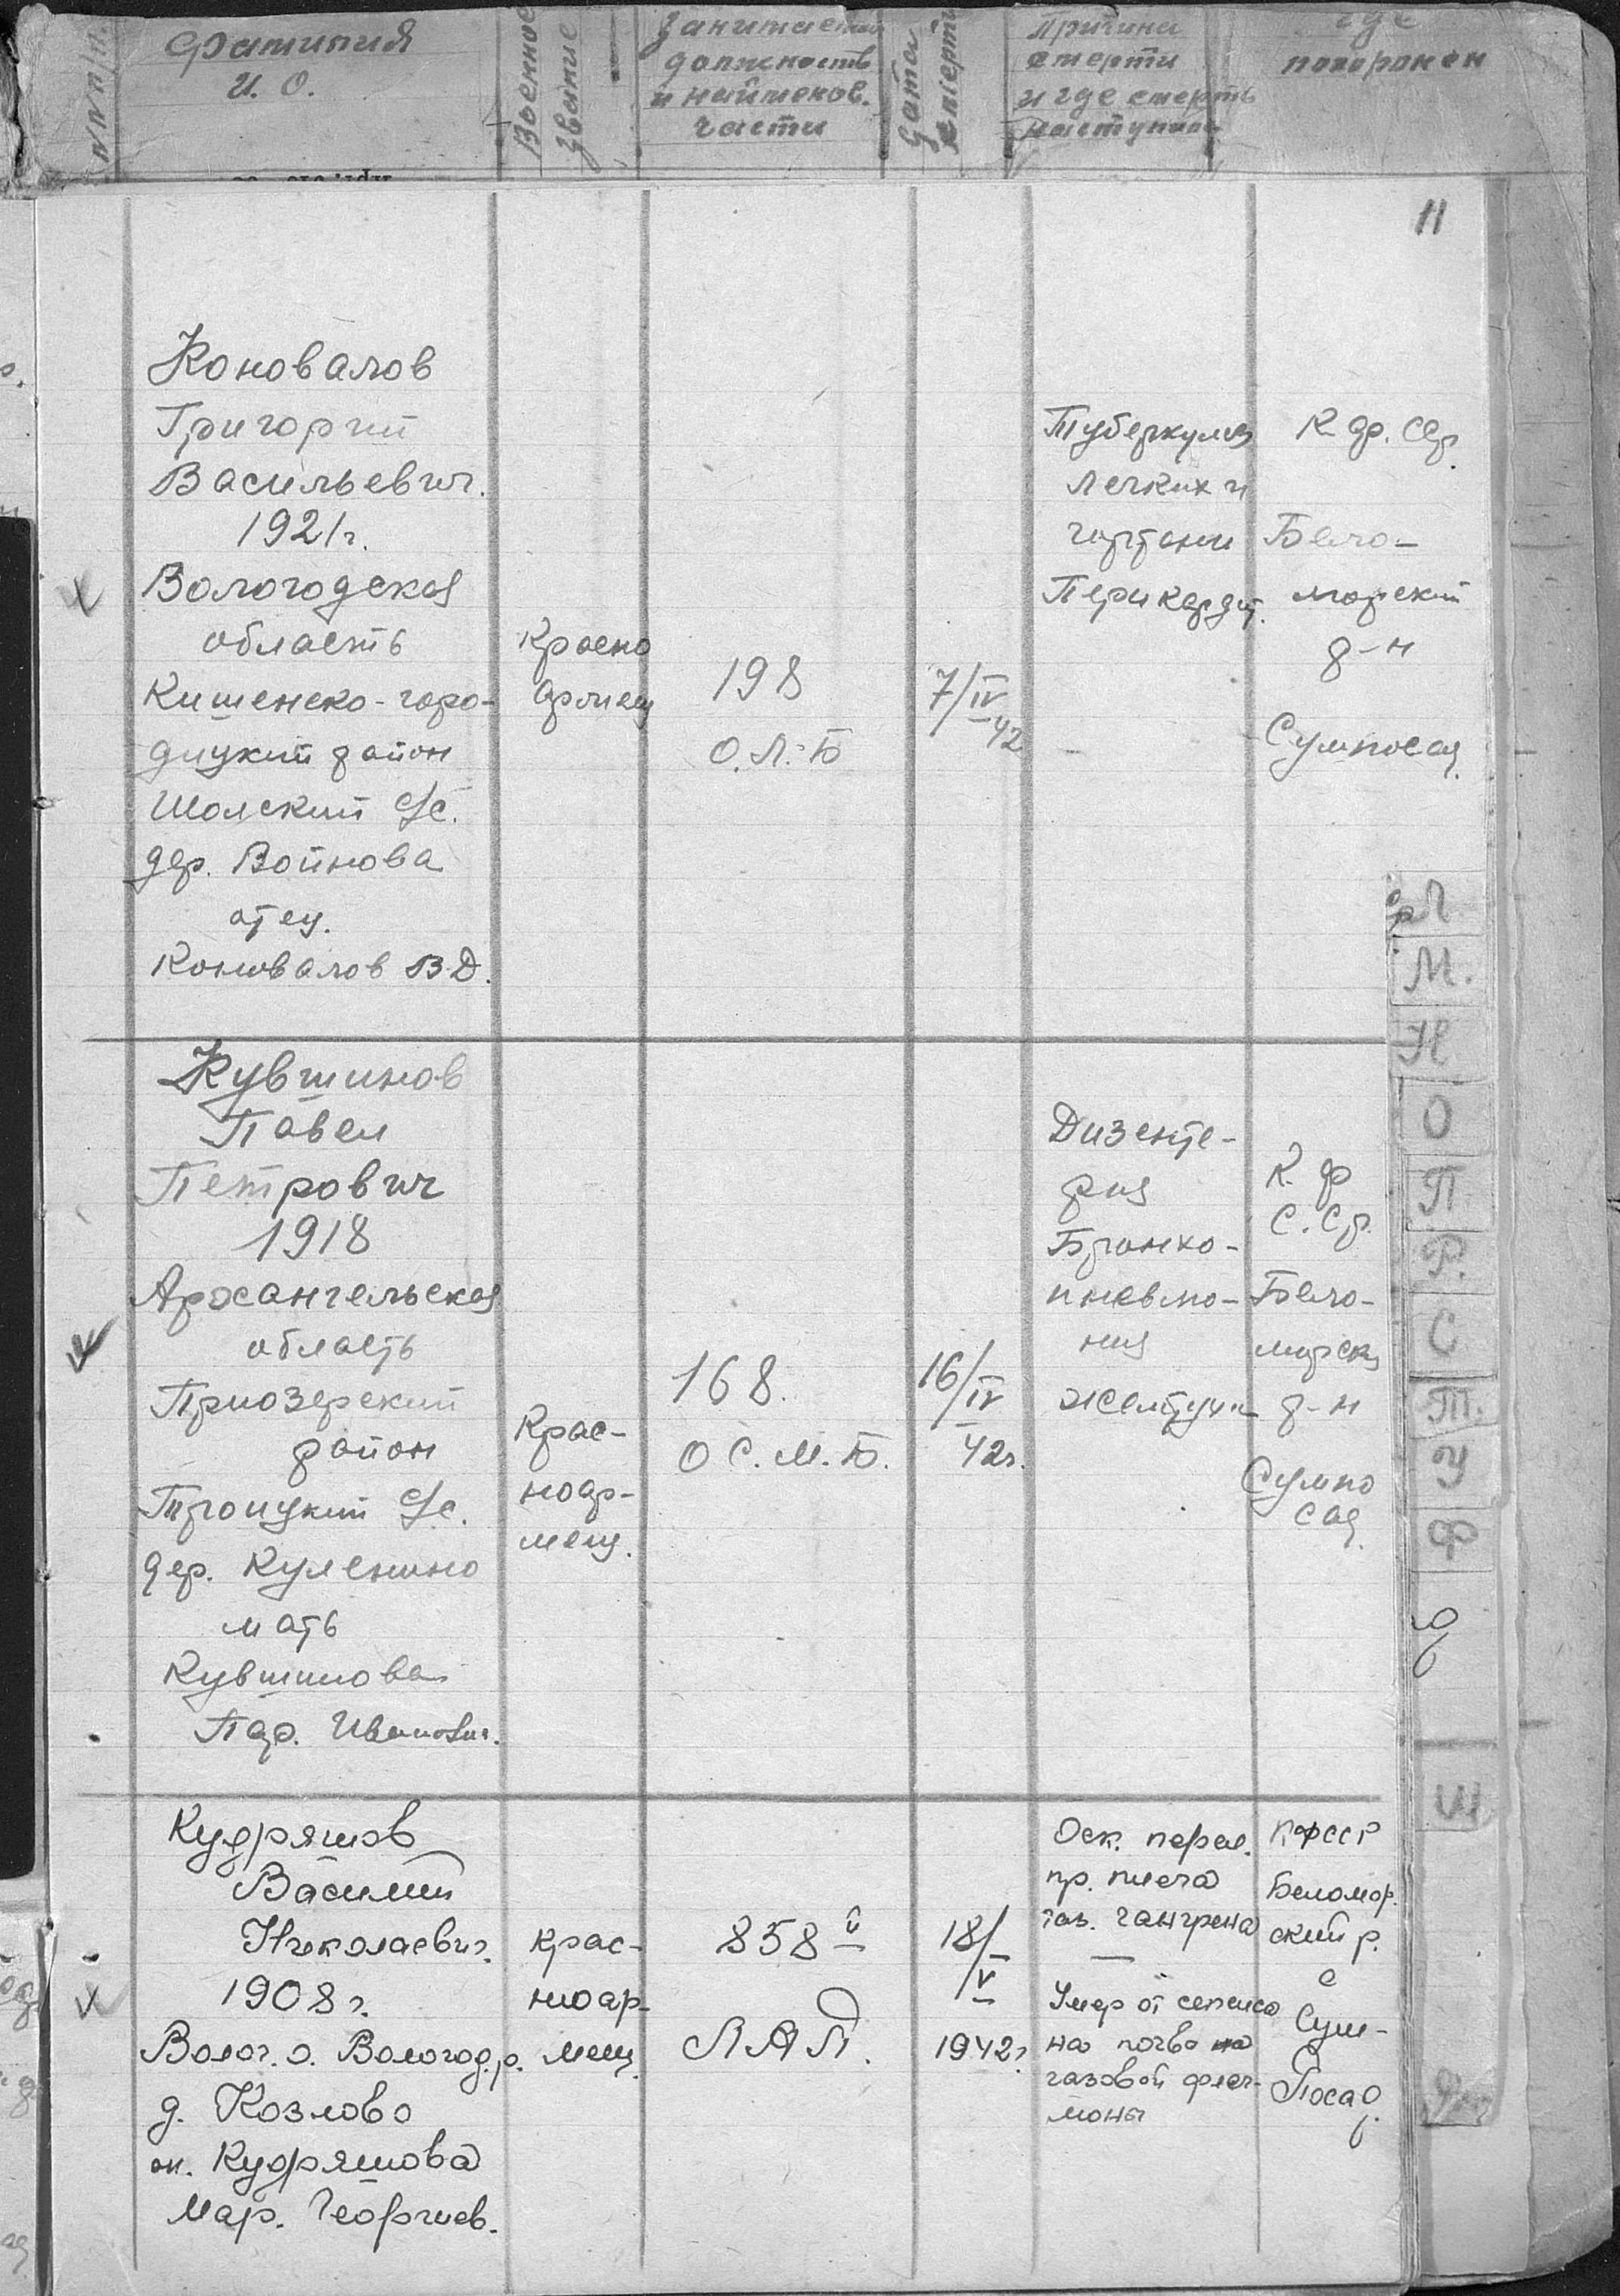 №№ п/п.
Фамилия
И. О.
Военное
звание
Занимаем
должность
и наименов.
части
Дата
смерти
Причина
смерти
и где смерть
наступила
где
похоронен
11
Коновалов
Григорий
Васильевич.
1921г.
Вологодская
область
Кишенско-горо-
дицкий район
Шолский с/с.
дер. Войнова
отец.
Коновалов В.Д.
Красно
армец
198
О.Л.Б
7/IV
42
Туберкулез
легких и
гортани
Перикардит.
К.ф.ССр.
Бело-
морский
р-н
Сумпосад.
Кувшинов
Павел
Петрович
1918
Архангельская
область
Приозерский
район
Троицкий с/с.
дер. Куленино
мать
Кувшинова
Пар. Ивановн.
Крас-
ноар-
меец.
168.
О С. М. Б.
16/IV
42г.
Дизенте-
рия
Бронхо-
пневмо-
ния
желтуха
К. ф
С. Ср.
Бело-
морски
р-н
Сумпо
сад.
Кудряшов
Василий
Николаевич.
1908 г.
Волог. о. Вологод.р.
д. Козлово
ж. Кудряшова
Мар. Георгиев.
крас-
ноар-
меец
858й
ЛАП.
18/V
1942г.
Оск. перел.
пр. плеча
газ. гангрена
Умер от сепсиса
на почве
газовой флег-
моны
КФССР
Беломор.
ский р.
с
Сум-
Посад.
Л
М.
Н
О
П
Р.
С
Т.
У
Ф
Ш